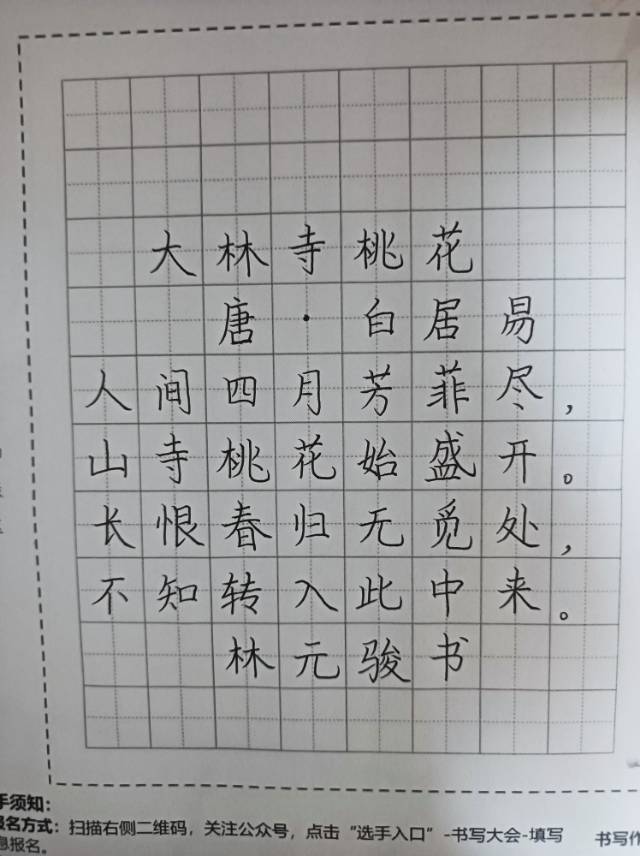 大林寺桃花
唐·白居易
人间四月芳菲尽，
山寺桃花始盛开。
长恨春归无觅处，
不知转入此中来。
林元骏书
手须知：
报名方式：扫描右侧二维码，关注公众号，点击“选手入口”-书写大会-填写 书写作
息报名。